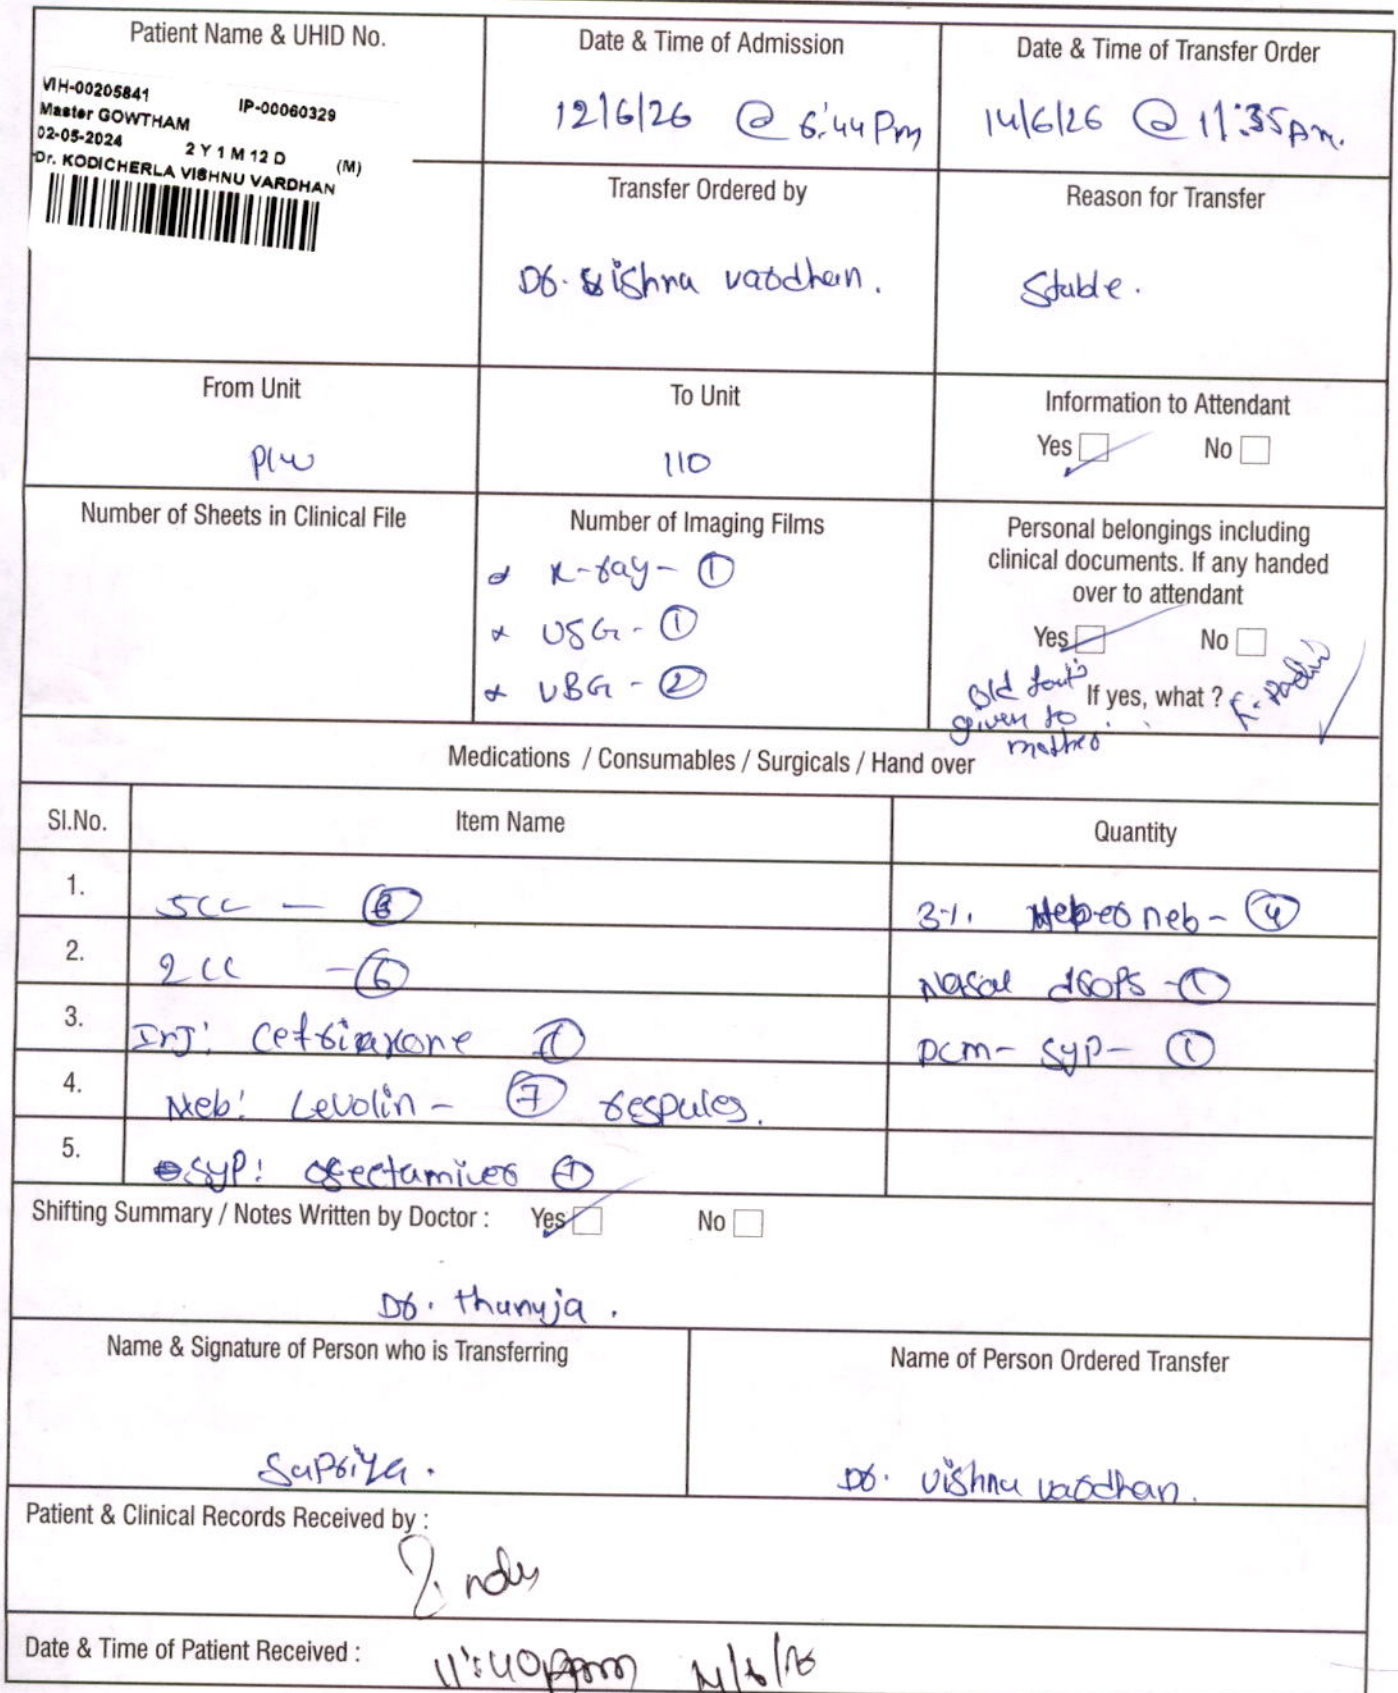 Patient Name & UHID No.
VIH-00205841 IP-00060329
Master GOWTHAM
02-05-2024 2 Y 1 M 12 D (M)
Dr. KODICHERLA VISHNU VARDHAN
Date & Time of Admission
12/6/26 @ 6:44 Pm
Date & Time of Transfer Order
14/6/26 @ 11:35 pm.
Transfer Ordered by
Dr. vishnu vardhan.
Reason for Transfer
Stable.
From Unit
To Unit
110
Information to Attendant
Yes No
Number of Sheets in Clinical File
Number of Imaging Films
x-ray - 1
USG - 1
VBG - 2
Personal belongings including
clinical documents. If any handed
over to attendant
Yes No
If yes, what ?
Old
given to
mother
Medications / Consumables / Surgicals / Hand over
Sl.No. Item Name Quantity
1. 5cc — 3%. neb - 4
2. 2cc - 6 Nasal drops - 1
3. Inj: Ceftriaxone 1 pcm - syp - 1
4. Neb: Levolin - 7 respules.
5. syp: 1
Shifting Summary / Notes Written by Doctor : Yes No
Dr. thanuja.
Name & Signature of Person who is Transferring
Supriya.
Name of Person Ordered Transfer
Dr. vishnu vardhan.
Patient & Clinical Records Received by :
Date & Time of Patient Received :
11:40 pm 14/6/26